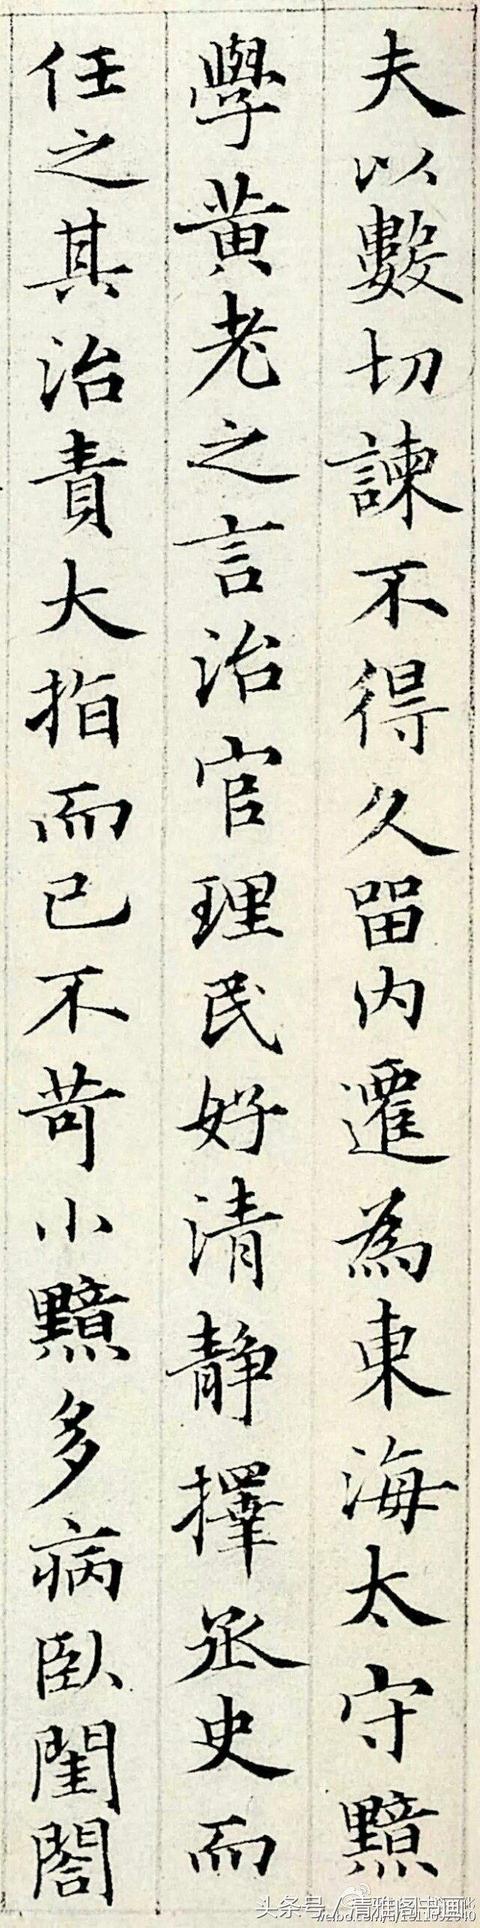 夫以數切諫不得久留内遷為東海太守黯
學黄老之言治官理民好清静擇丞史而
任之其治責大指而已不苛小黯多病臥閨閤
头条号/清雅图书画